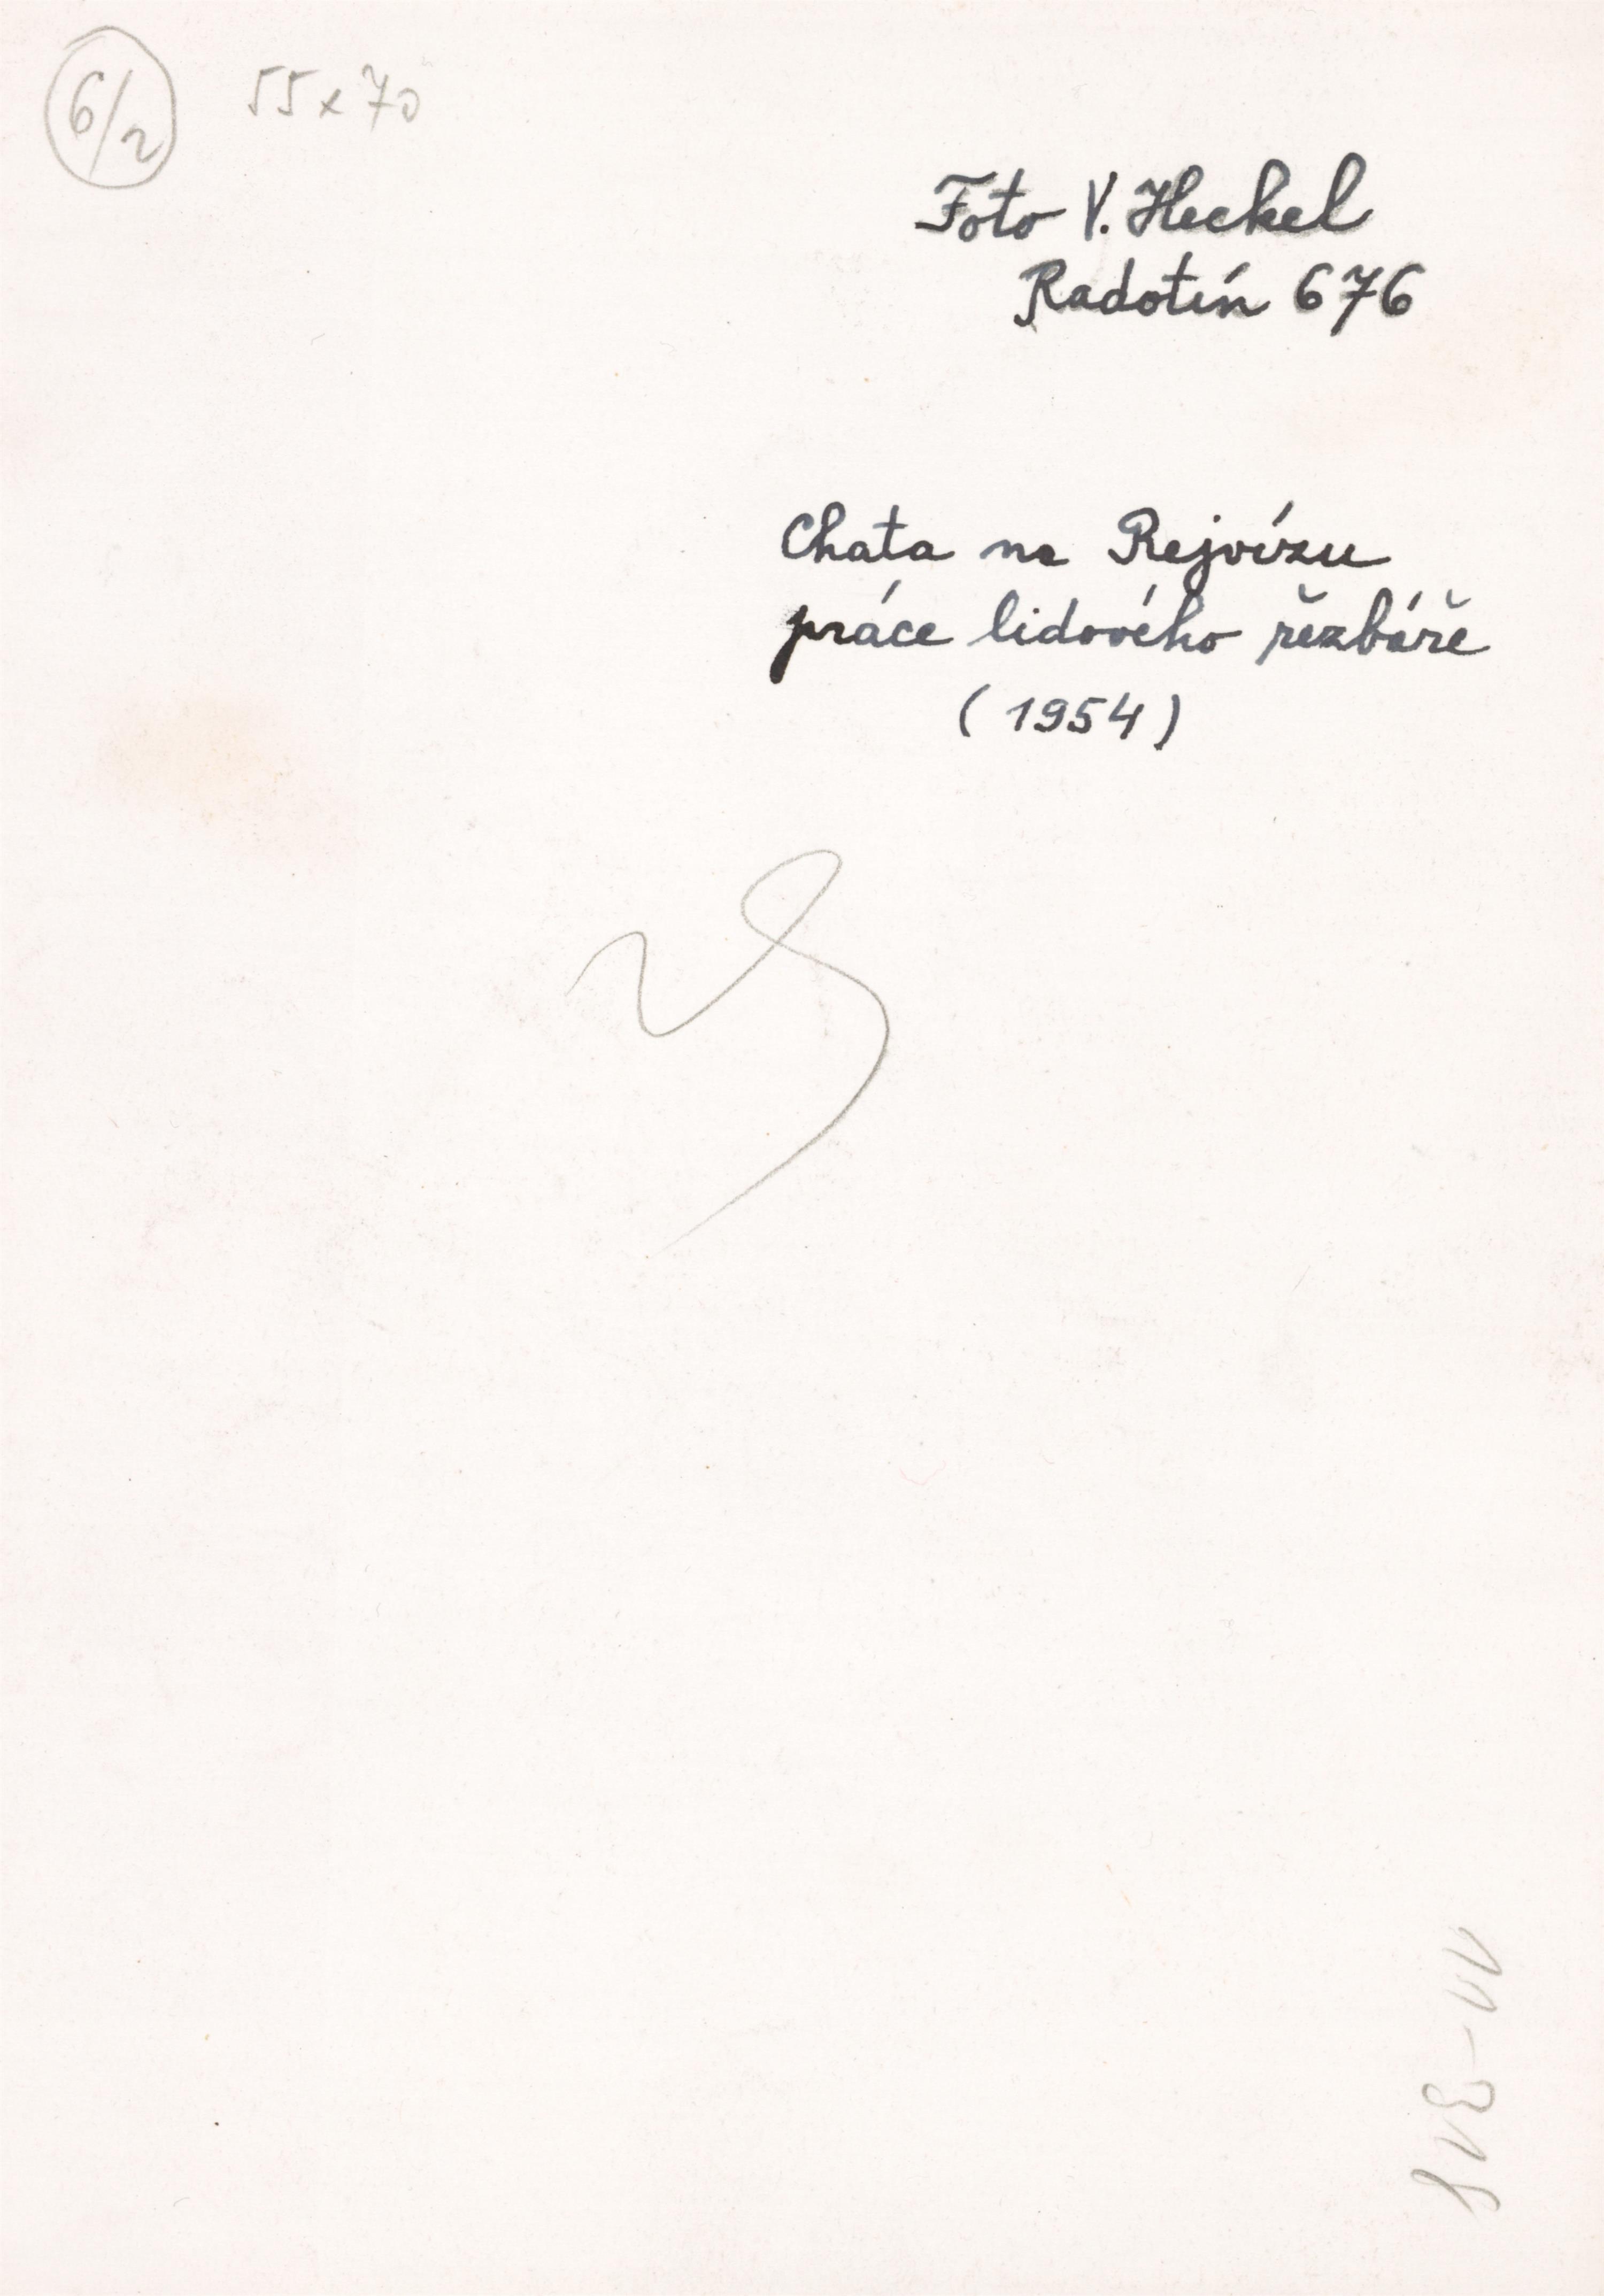 6/2 55x70
Foto V. Heckel
Radotín 676
Chata na Rejvízu
práce lidového řezbáře
(1954)